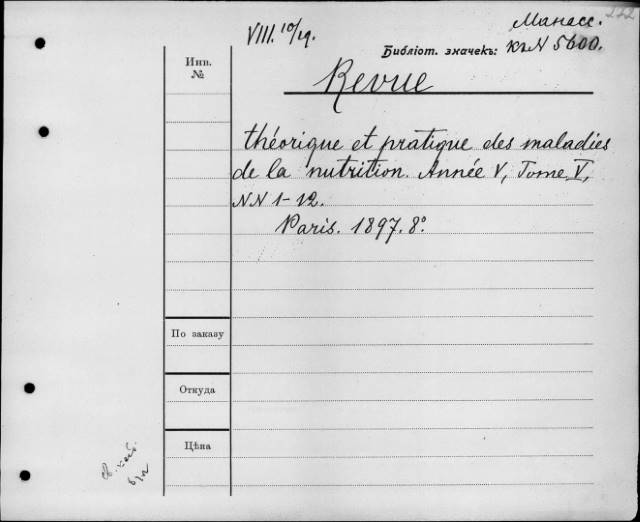 222
Манасс.
VIII. 10/19.
Библіот. значекъ: къ N 5600.
Инв.
№
Revue
théorique et pratique des maladies
de la nutrition. Année V, Tome V,
NN 1-12.
Paris. 1897. 8°.
По заказу
Откуда
Цѣна